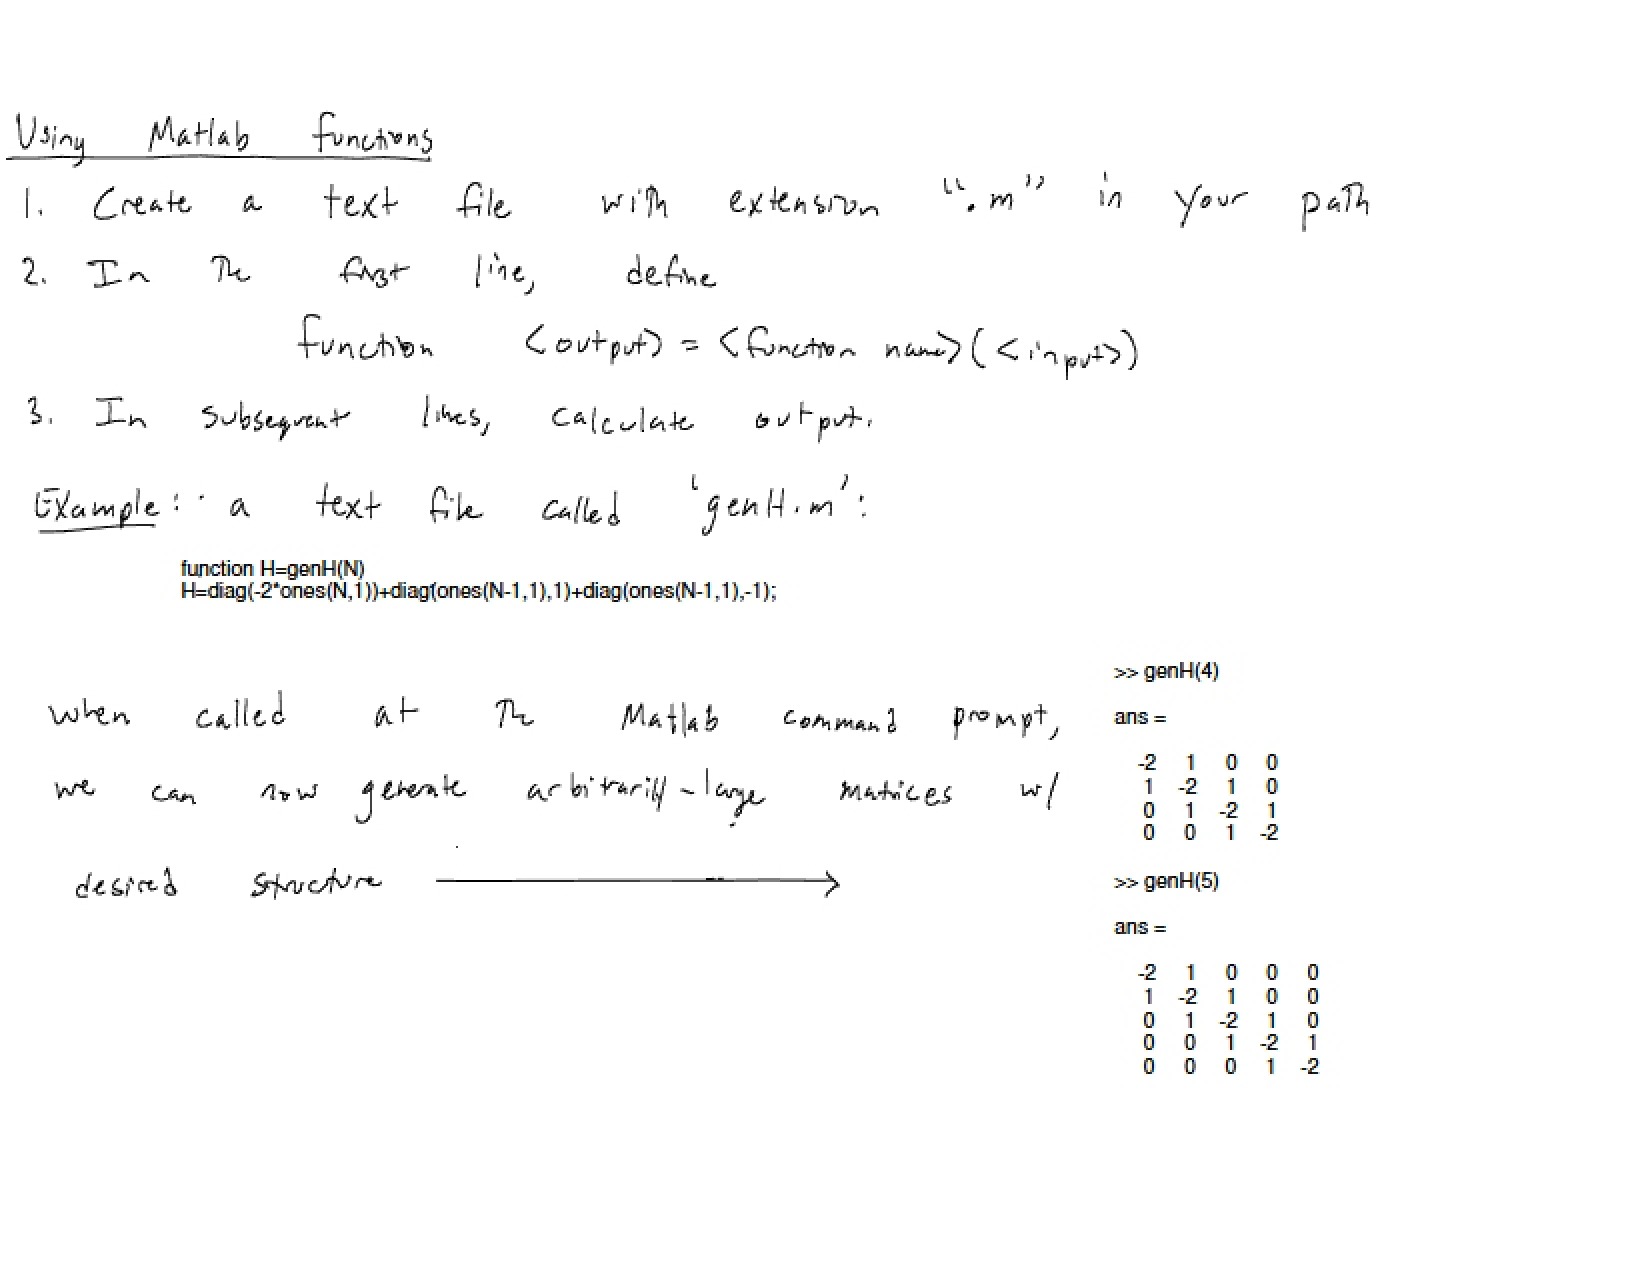 Using Matlab functions
1. Create a text file with extension ".m" in your path
2. In the first line, define
function <output> = <function name>(<input>)
3. In subsequent lines, calculate output.
Example: a text file called 'genH.m':
function H=genH(N)
H=diag(-2*ones(N,1))+diag(ones(N-1,1),1)+diag(ones(N-1,1),-1);
when called at the Matlab command prompt,
we can now generate arbitrarily-large matrices w/
desired structure
>> genH(4)
ans =
-2 1 0 0
1 -2 1 0
0 1 -2 1
0 0 1 -2
>> genH(5)
ans =
-2 1 0 0 0
1 -2 1 0 0
0 1 -2 1 0
0 0 1 -2 1
0 0 0 1 -2